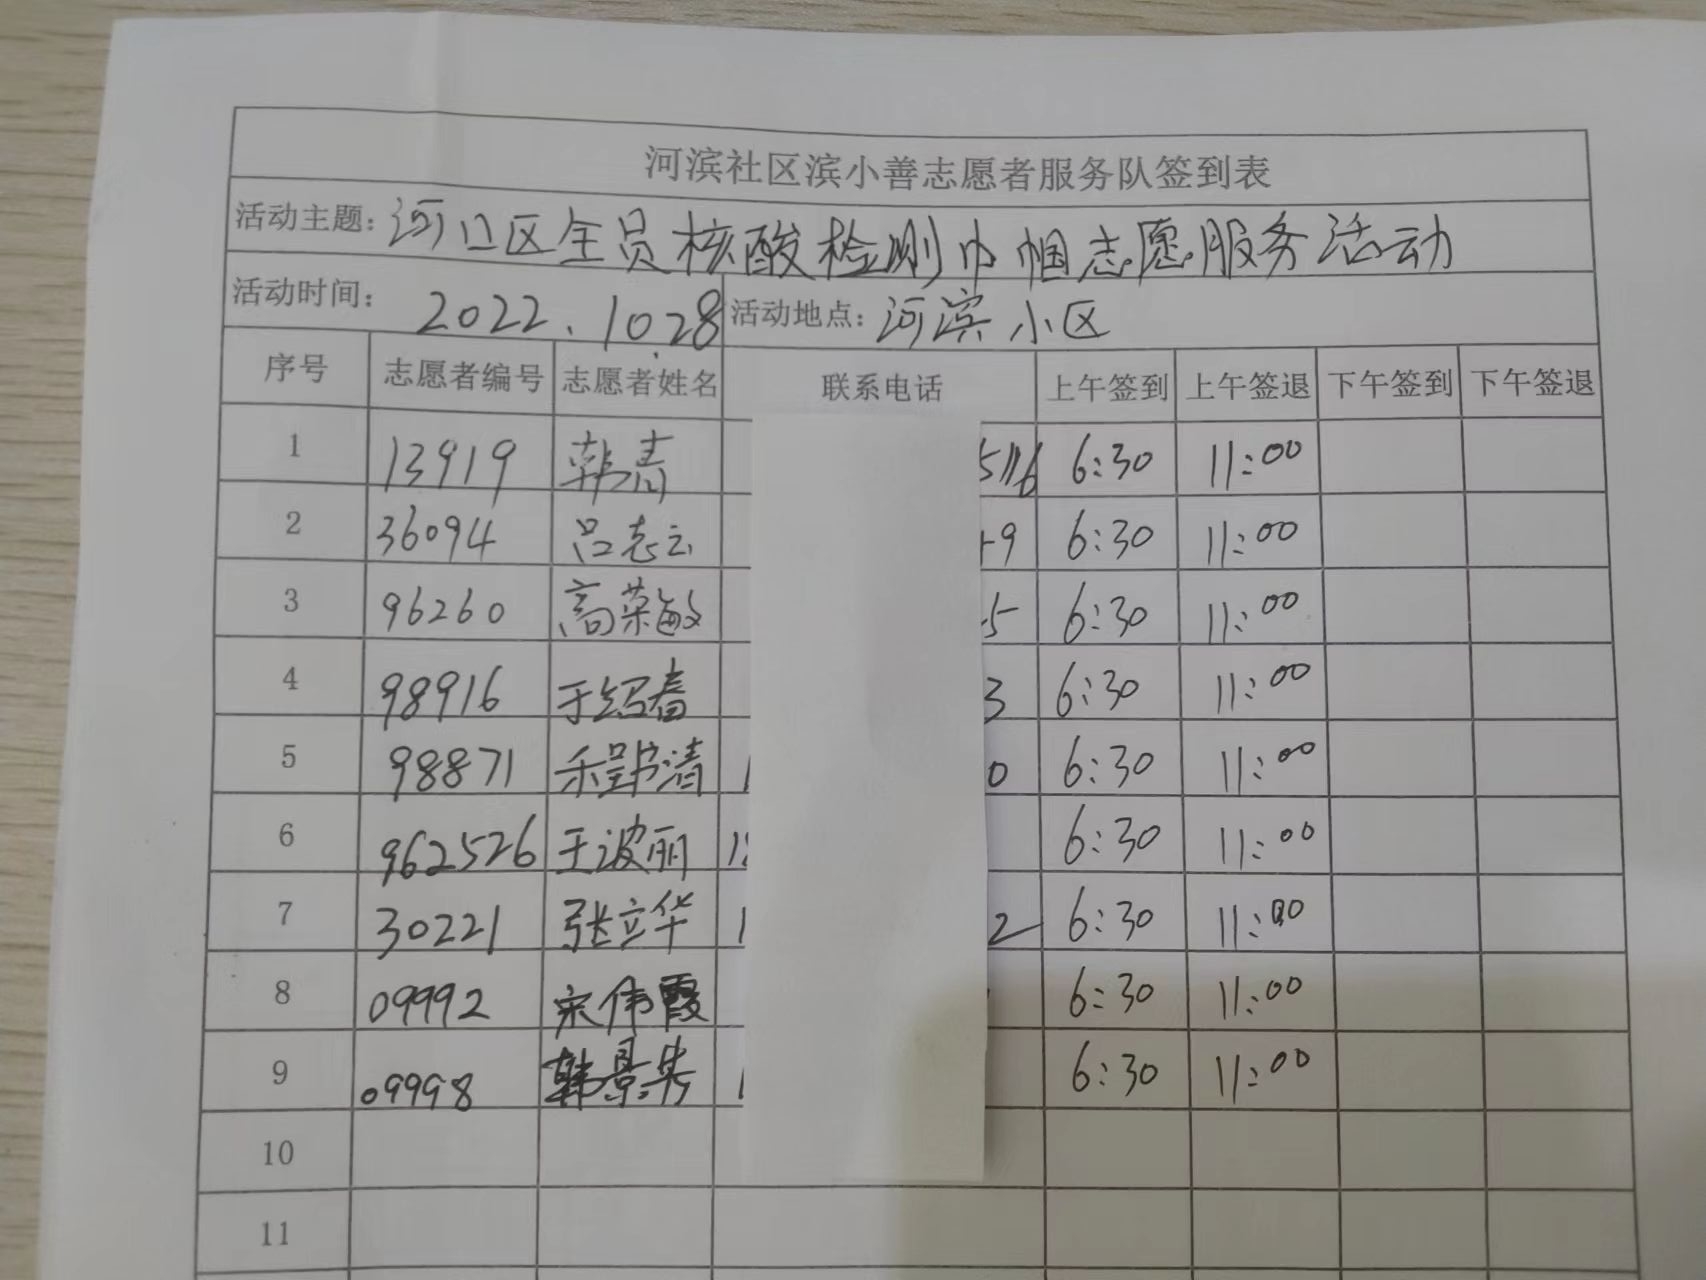 河滨社区滨小善志愿者服务队签到表
活动主题：河口区全员核酸检测巾帼志愿服务活动
活动时间： 2022.10.28 活动地点：河滨小区
序号 志愿者编号 志愿者姓名 联系电话 上午签到 上午签退 下午签到 下午签退
1 13919 韩青 5116 6:30 11:00
2 36094 吕志云 9 6:30 11:00
3 96260 高荣敏 5 6:30 11:00
4 98916 于绍春 3 6:30 11:00
5 98871 清 1 0 6:30 11:00
6 962526 王波丽 1 6:30 11:00
7 30221 张立华 1 2 6:30 11:00
8 09992 宋伟霞 6:30 11:00
9 09998 韩景 1 6:30 11:00
10
11